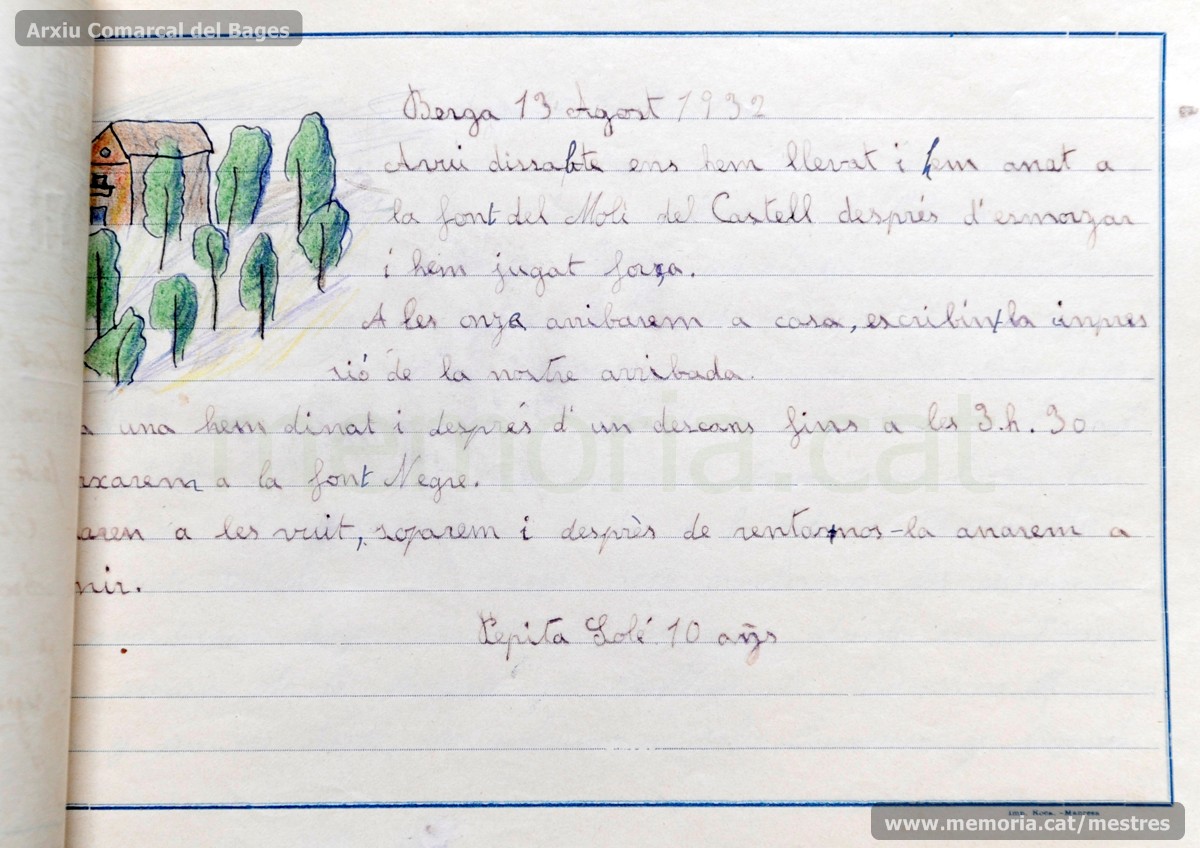 Arxiu Comarcal del Bages
Berga 13 Agost 1932
Avui dissabte ens hem llevat i hem anat a
la font del Molí del Castell després d'esmorzar
i hem jugat força.
A les onze arribarem a casa, escribín la inpres
sió de la nostre arribada.
a una hem dinat i després d'un descans fins a les 3.h. 30
rxarem a la font Negre.
aren a les vuit, soparem i desprès de rentarnos-la anarem a
mir.
Pepita Solé 10 anys
memoria.cat
Imp. Roca. - Manresa
www.memoria.cat/mestres